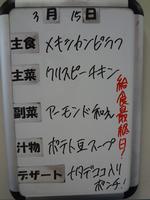 3月15日
主食 メキシカンピラフ
主菜 クリスピーチキン
副菜 アーモンド和え
汁物 ポテト豆スープ
デザート ナタデココ入り
ポンチ!
給食最終日!